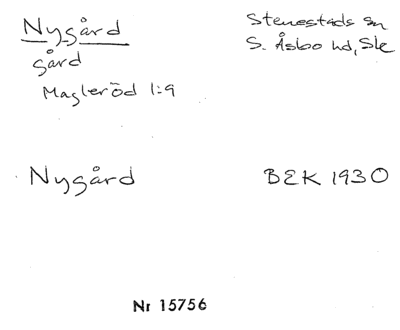 Nygård
Stenestads sn
gård
S. Åsbo hd, Ske
Magleröd 1:9
Nygård
BEK 1930
Nr 15756